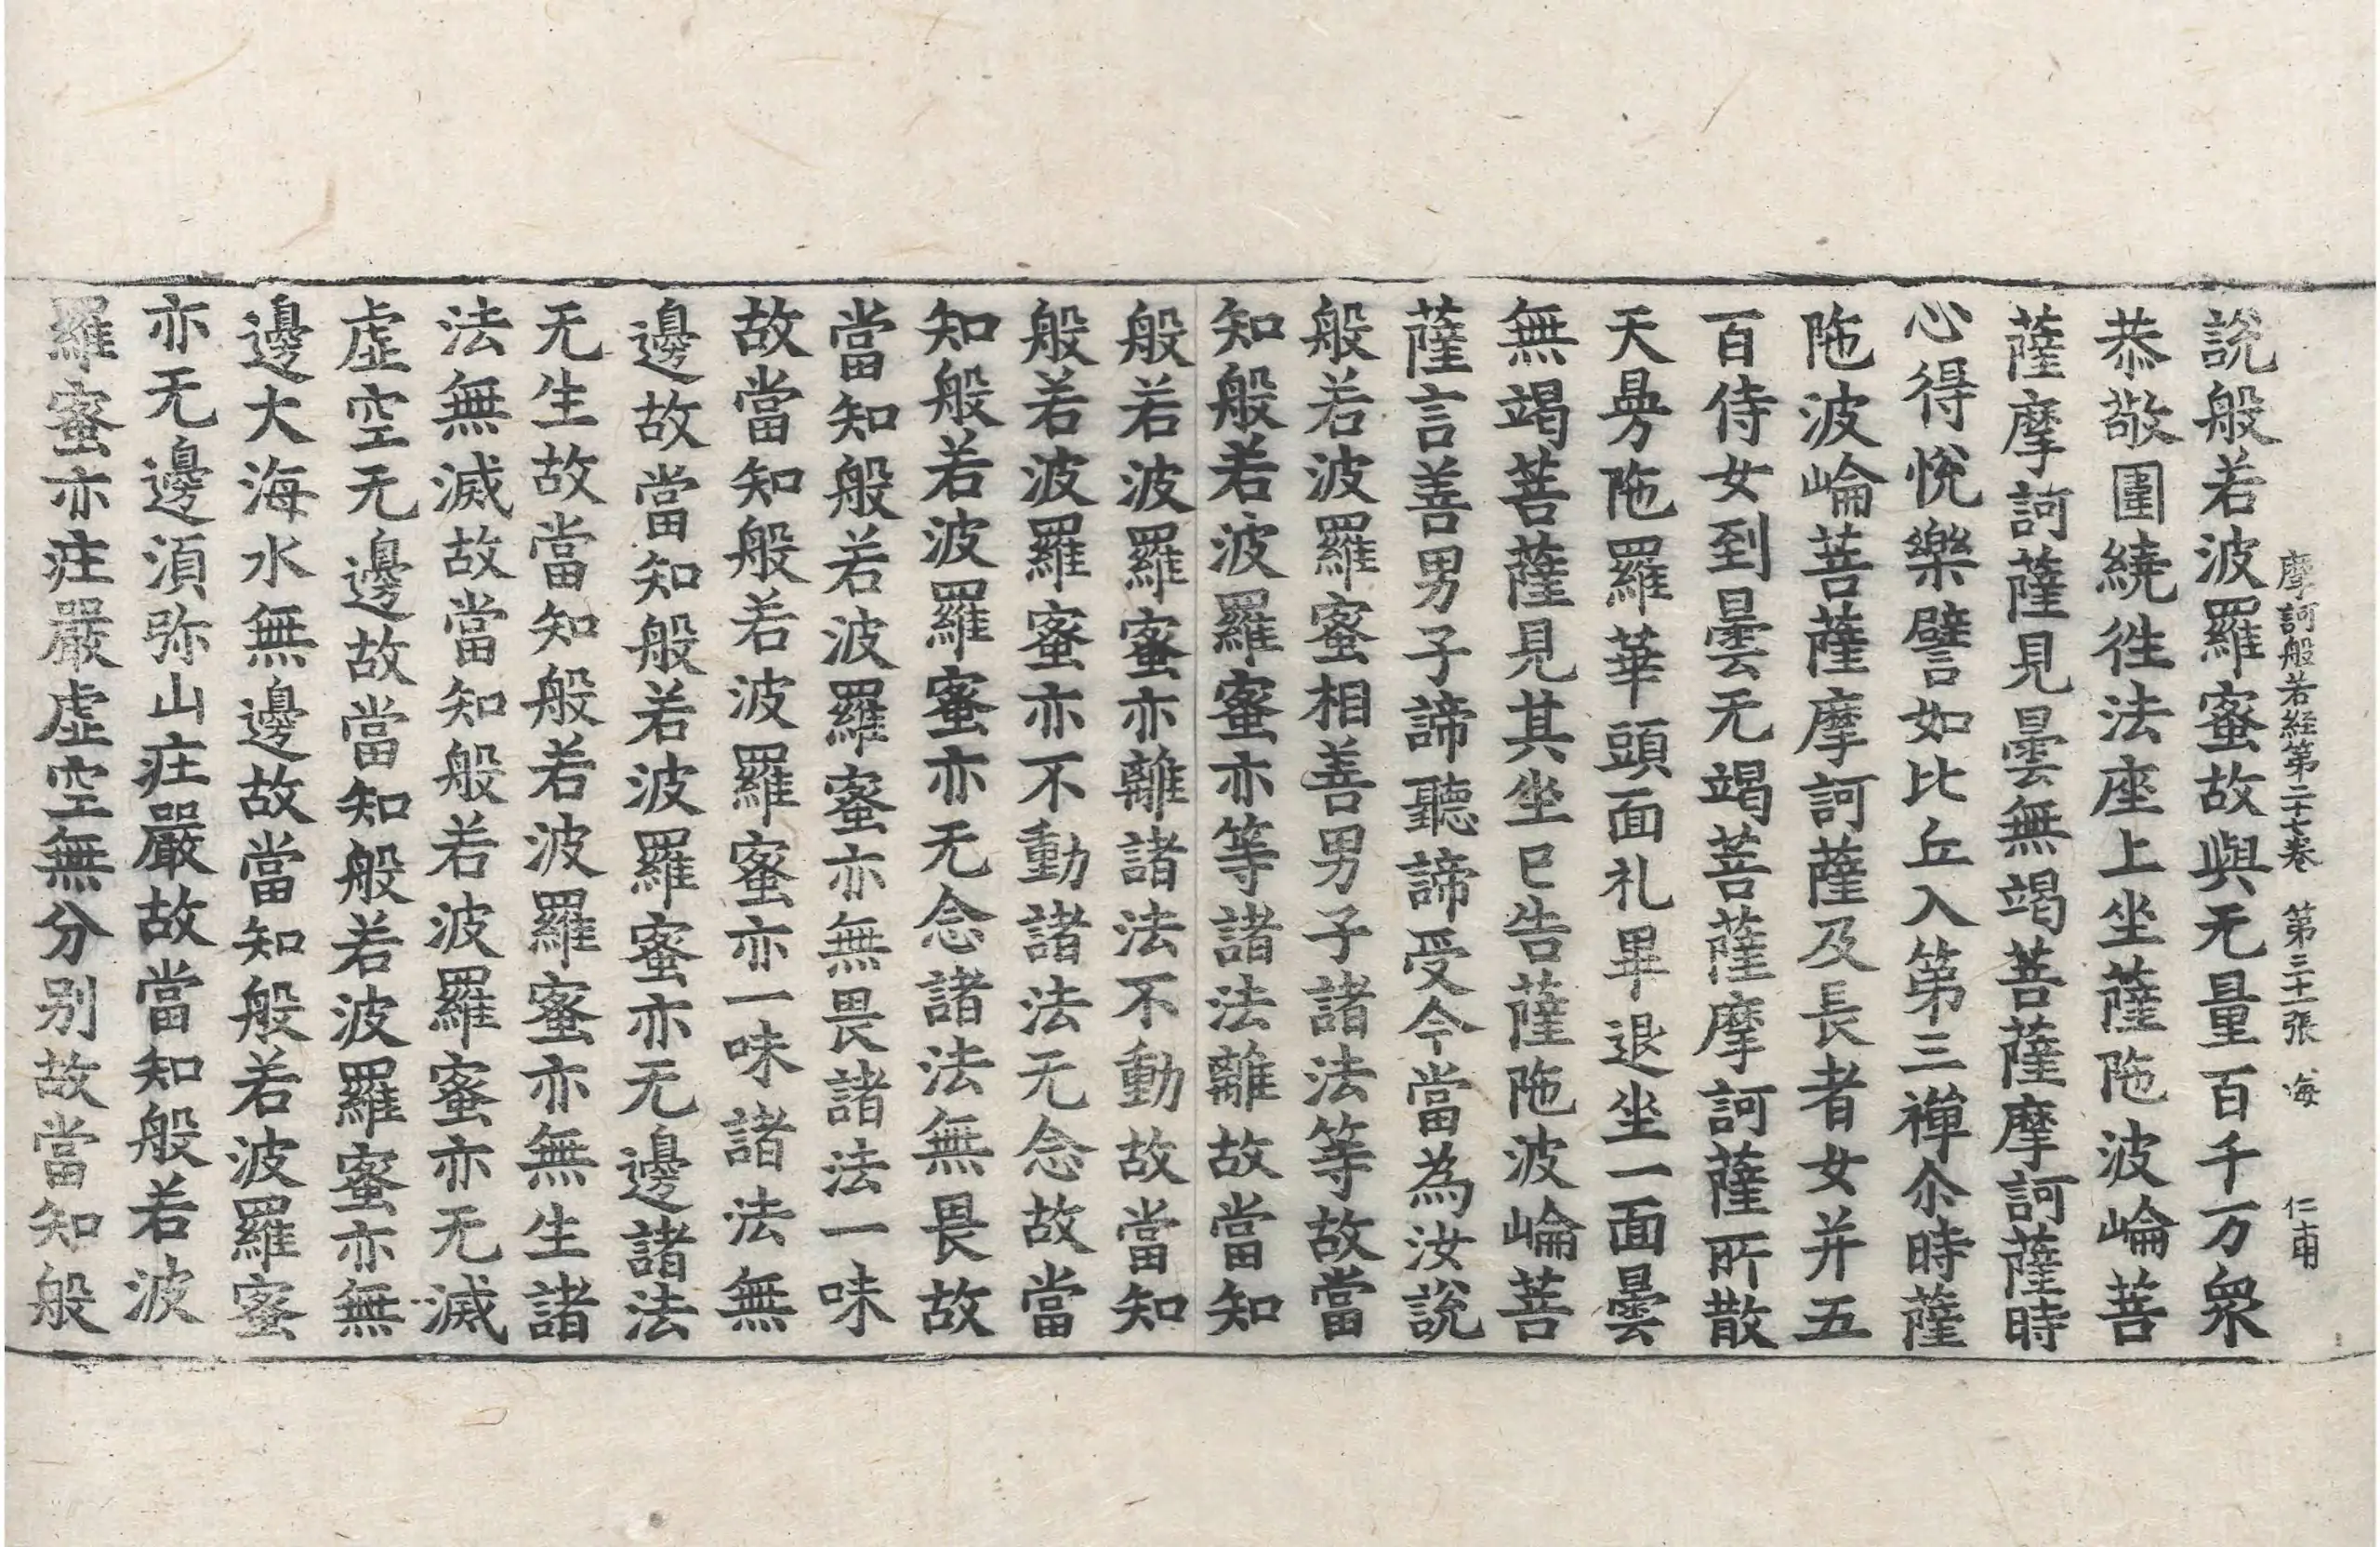 摩訶般若經第二十七卷　第三十一張　海　仁甫
說般若波羅蜜故與无量百千万衆
恭敬圍繞徃法座上坐薩陁波崘菩
薩摩訶薩見曇無竭菩薩摩訶薩時
心得悅樂譬如比丘入第三禪尒時薩
陁波崘菩薩摩訶薩及長者女并五
百侍女到曇无竭菩薩摩訶薩所散
天曼陁羅華頭面礼畢退坐一面曇
無竭菩薩見其坐已告薩陁波崘菩
薩言善男子諦聽諦受今當為汝說
般若波羅蜜相善男子諸法等故當
知般若波羅蜜亦等諸法離故當知
般若波羅蜜亦離諸法不動故當知
般若波羅蜜亦不動諸法无念故當
知般若波羅蜜亦无念諸法無畏故
當知般若波羅蜜亦無畏諸法一味
故當知般若波羅蜜亦一味諸法無
邊故當知般若波羅蜜亦无邊諸法
无生故當知般若波羅蜜亦無生諸
法無滅故當知般若波羅蜜亦无滅
虛空无邊故當知般若波羅蜜亦無
邊大海水無邊故當知般若波羅蜜
亦无邊湏弥山㽵嚴故當知般若波
羅蜜亦㽵嚴虛空無分别故當知般